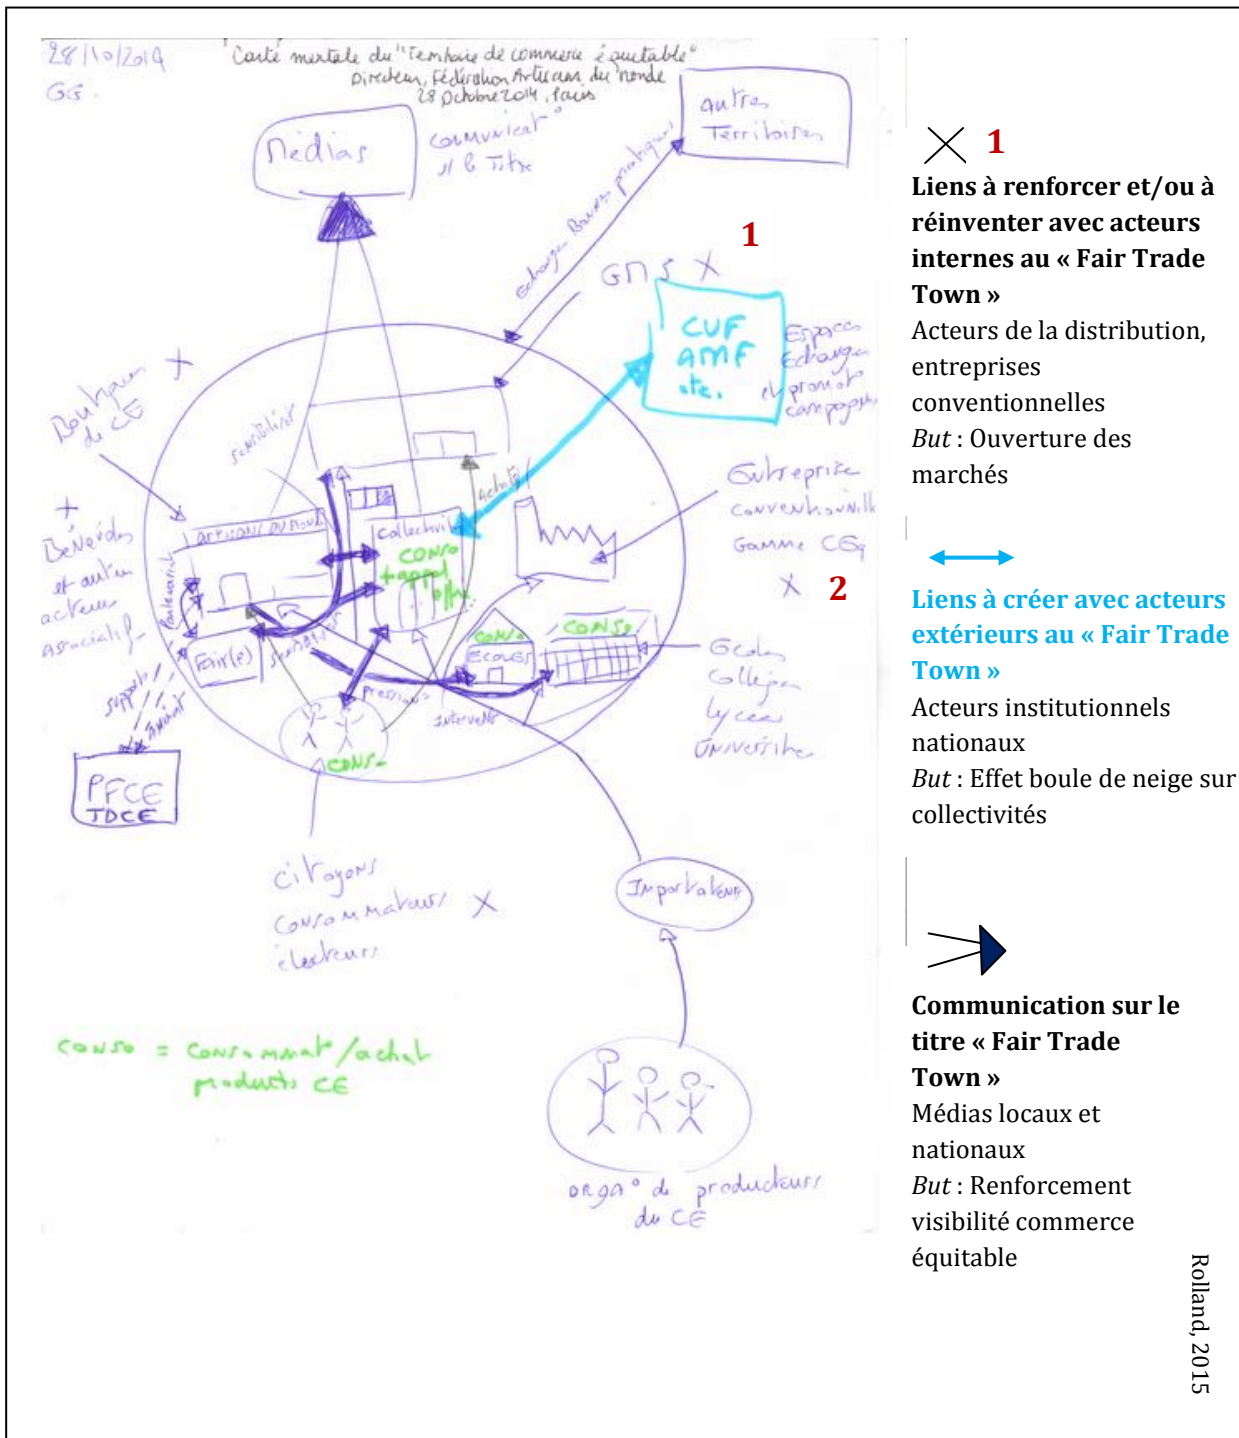 28/10/2014
GG.
"Carte mentale du "Territoire de commerce équitable"
Directeur, Fédération Artisans du monde
28 Octobre 2014, Paris
Médias
communicat°
s/ le Titre
autres
Territoires
Echanges Bonnes pratiques
1
GMS X
CUF
AMF
etc.
Espaces
Echanges
et promot°
campagnes
Boutiques X
de CE
sensibiliser
achats
X
Bénévoles
et autres
acteurs
associatifs
Partenariat
ARTISANS DU MONDE
Collectivité
CONSO
+ appel
offre
Entreprise
conventionnelle
Gamme CEq
X 2
Fair(e)
CONSO
ECOLES
CONSO
Ecoles
Collèges
Lycées
Universités
support
pressions
CONSO
PFCE
TDCE
citoyens
consommateurs X
électeurs
Importateurs
CONSO = consommat°/achat
products CE
orga° de producteurs
du CE
X 1
Liens à renforcer et/ou à
réinventer avec acteurs
internes au « Fair Trade
Town »
Acteurs de la distribution,
entreprises
conventionnelles
But : Ouverture des
marchés
Liens à créer avec acteurs
extérieurs au « Fair Trade
Town »
Acteurs institutionnels
nationaux
But : Effet boule de neige sur
collectivités
Communication sur le
titre « Fair Trade
Town »
Médias locaux et
nationaux
But : Renforcement
visibilité commerce
équitable
Rolland, 2015